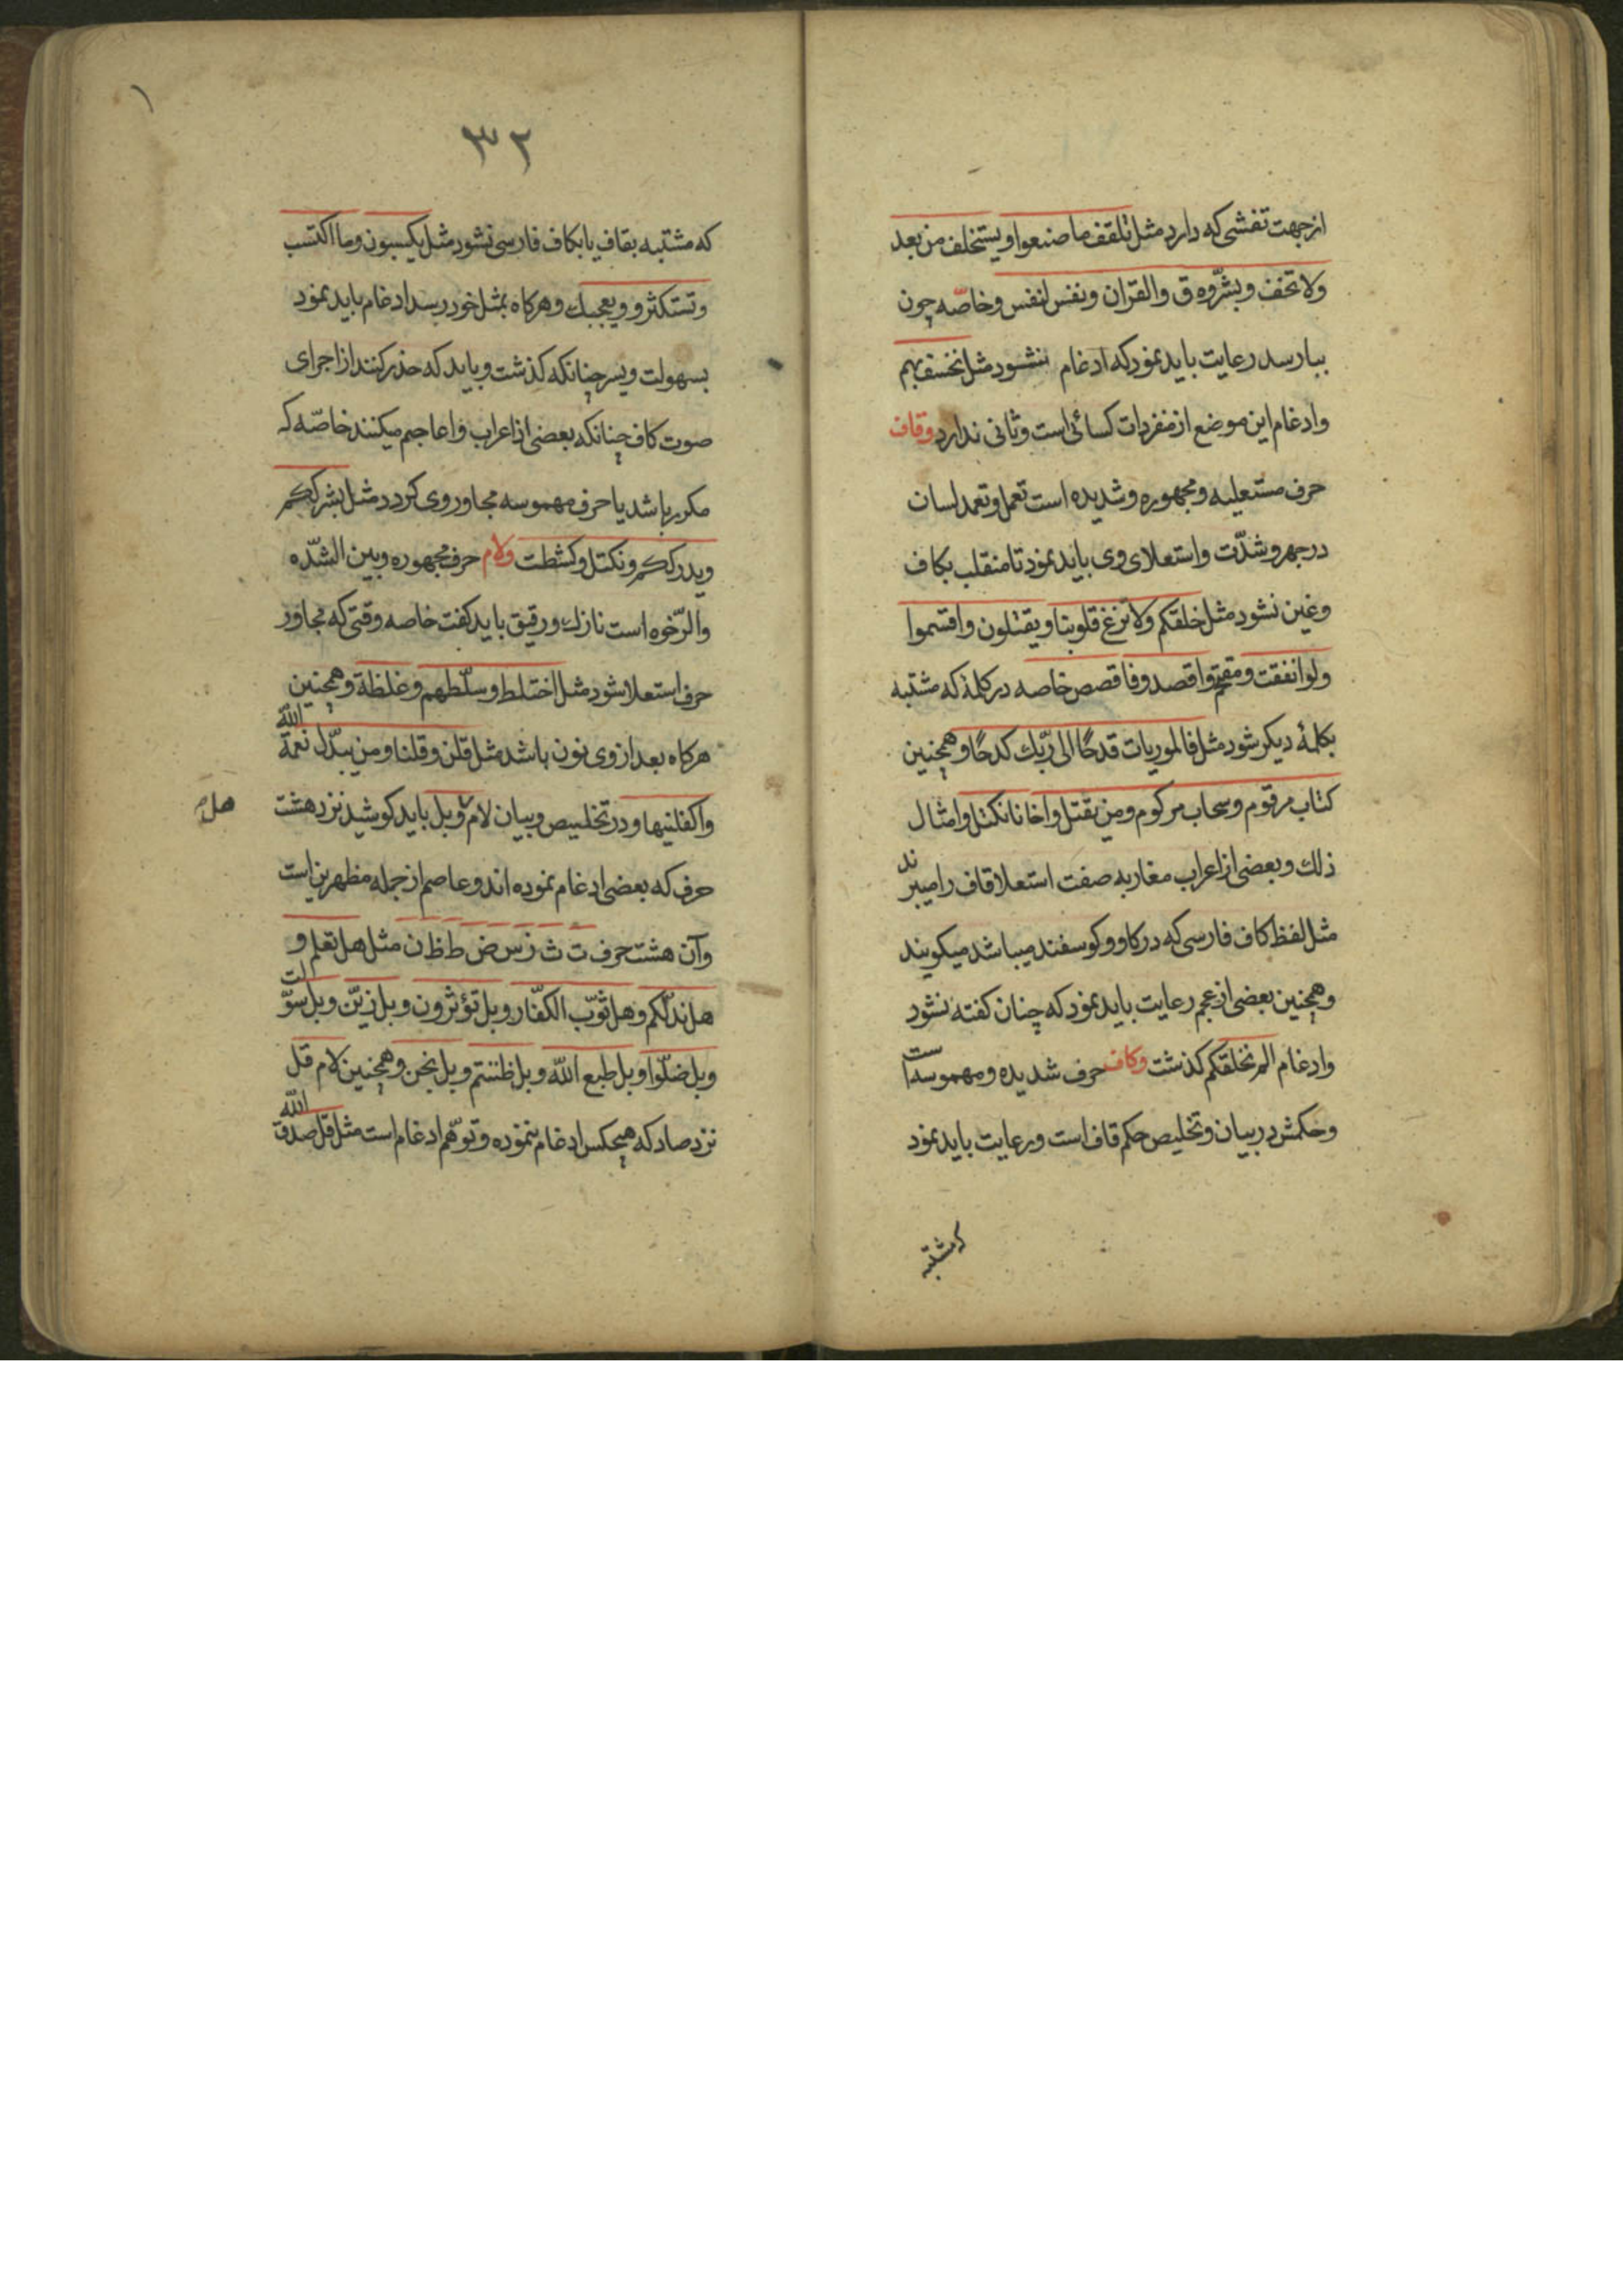 از جهت تفشی که دارد مثل تلقف ما صنعوا و یستخلف من بعد
ولا تخف وبشروه ق والقران ونفس لنفس وخاصّه چون
ببا رسد رعایت باید نمود که ادغام نشود مثل نخسف بهم
وادغام این موضع از منفردات کسائی است وثانی ندارد وقاف
حرف مستعلیه ومجهوره وشدیده است تعمل وتعمد لسان
در جهر وشدّت واستعلای وی باید نمود تا منقلب بکاف
وغین نشود مثل خلقکم ولا تزغ قلوبنا ویقتلون واقسموا
ولو انفقت واقصد وفاقصص خاصه در کلمهٔ که مشتبه
بکلمهٔ دیکر شود مثل فالموریات قدحًا الی ربّك کدحًا وهمچنین
کتاب مرقوم وسحاب مرکوم ومن یقتل واخانا نکتل وامثال
ذلك وبعضی از اعراب مغاربه صفت استعلا قاف را میبرند
مثل لفظ کاف فارسی که در کاو وکوسفند میباشد میکویند
وهمچنین بعضی از عجم رعایت باید نمود که چنان کفته نشود
وادغام الم نخلقکم کذشت وکاف حرف شدیده ومهموسه است
وحکمش در بیان وتخلیص حکم قاف است ورعایت باید نمود
که مشتبه
۳۲
۱
که مشتبه بقاف یا بکاف فارسی نشود مثل یکسبون وما اکتسب
وتستکثر و ویعجبك وهرکاه بمثل خود رسد ادغام باید نمود
بسهولت ویسر چنانکه کذشت وباید که حذر کنند از اجرای
صوت کاف چنانکه بعضی از اعراب واعاجم میکنند خاصّه که
مکرر باشد یا حرف مهموسه مجاور وی کردد مثل بشرککم
ویدرککم ونکتل وکشطت ولام حرف مجهوره وبین الشدّه
والرّخوه است نازك ورقیق باید کفت خاصه وقتی که مجاور
حرف استعلا شود مثل اختلط وسلّطهم وغلظة وهمچنین
هرکاه بعد از وی نون باشد مثل قلن وقلنا ومن یبدّل نعمة الله
واکفلنیها ودر تخلیص وبیان لام وبل باید کوشید نزد هشت
هل
حرف که بعضی ادغام نموده اند وعاصم از جمله مظهرین است
وآن هشت حرف ت ث ز س ض ط ظ ن مثل هل تعلم و
هل ندلّکم وهل ثوّب الکفّار وبل تؤثرون وبل زیّن وبل سوّلت
وبل ضلّوا وبل طبع الله وبل ظننتم وبل نحن وهمچنین لام قل
نزد صاد که هیچکس ادغام ننموده وتوهّم ادغام است مثل قل صدق الله